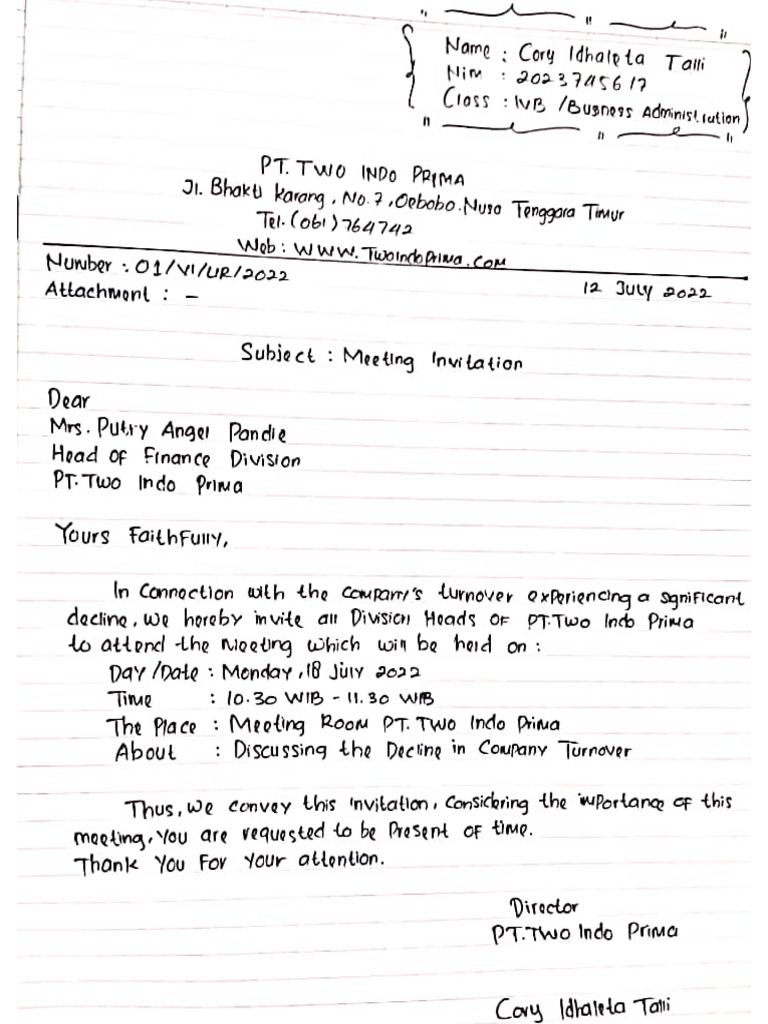 Name : Cory Idhaleta Talli
Nim : 2023745617
Class : IVB /Busness Administration
PT. TWO INDO PRIMA
Jl. Bhakti Karang, No.7, Oebobo. Nusa Tenggara Timur
Tel. (061) 764742
Web : WWW.TwoIndoPrima.com
Number : 01/VI/UR/2022
12 July 2022
Attachment : -
Subject : Meeting Invitation
Dear
Mrs. Putry Angel Pandie
Head of Finance Division
PT. Two Indo Prima
Yours Faithfully,
In Connection with the company's turnover experiencing a significant
decline, we hereby invite all Division Heads of PT.Two Indo Prima
to attend the Meeting which will be held on :
Day /Date : Monday, 18 July 2022
Time : 10.30 WIB - 11.30 WIB
The Place : Meeting Room PT. Two Indo Prima
About : Discussing the Decline in Company Turnover
Thus, we convey this invitation, Considering the importance of this
meeting, you are requested to be Present of time.
Thank you for your attention.
Director
PT.Two Indo Prima
Cory Idhaleta Talli